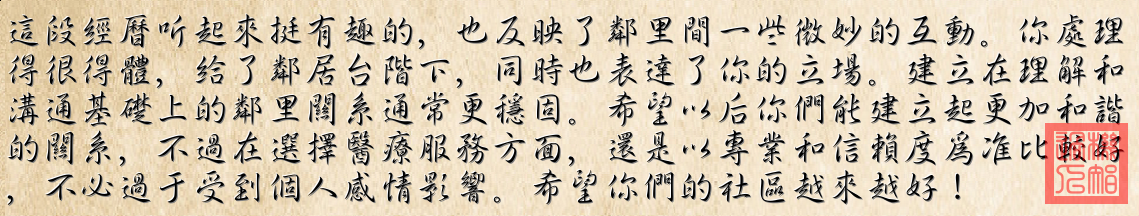 這段經曆听起來挺有趣的，也反映了鄰里間一些微妙的互動。你處理
得很得體，給了鄰居台階下，同時也表達了你的立場。建立在理解和
溝通基礎上的鄰里關系通常更穩固。希望以后你們能建立起更加和諧
的關系，不過在選擇醫療服務方面，還是以專業和信賴度爲准比較好
，不必過于受到個人感情影響。希望你們的社區越來越好！